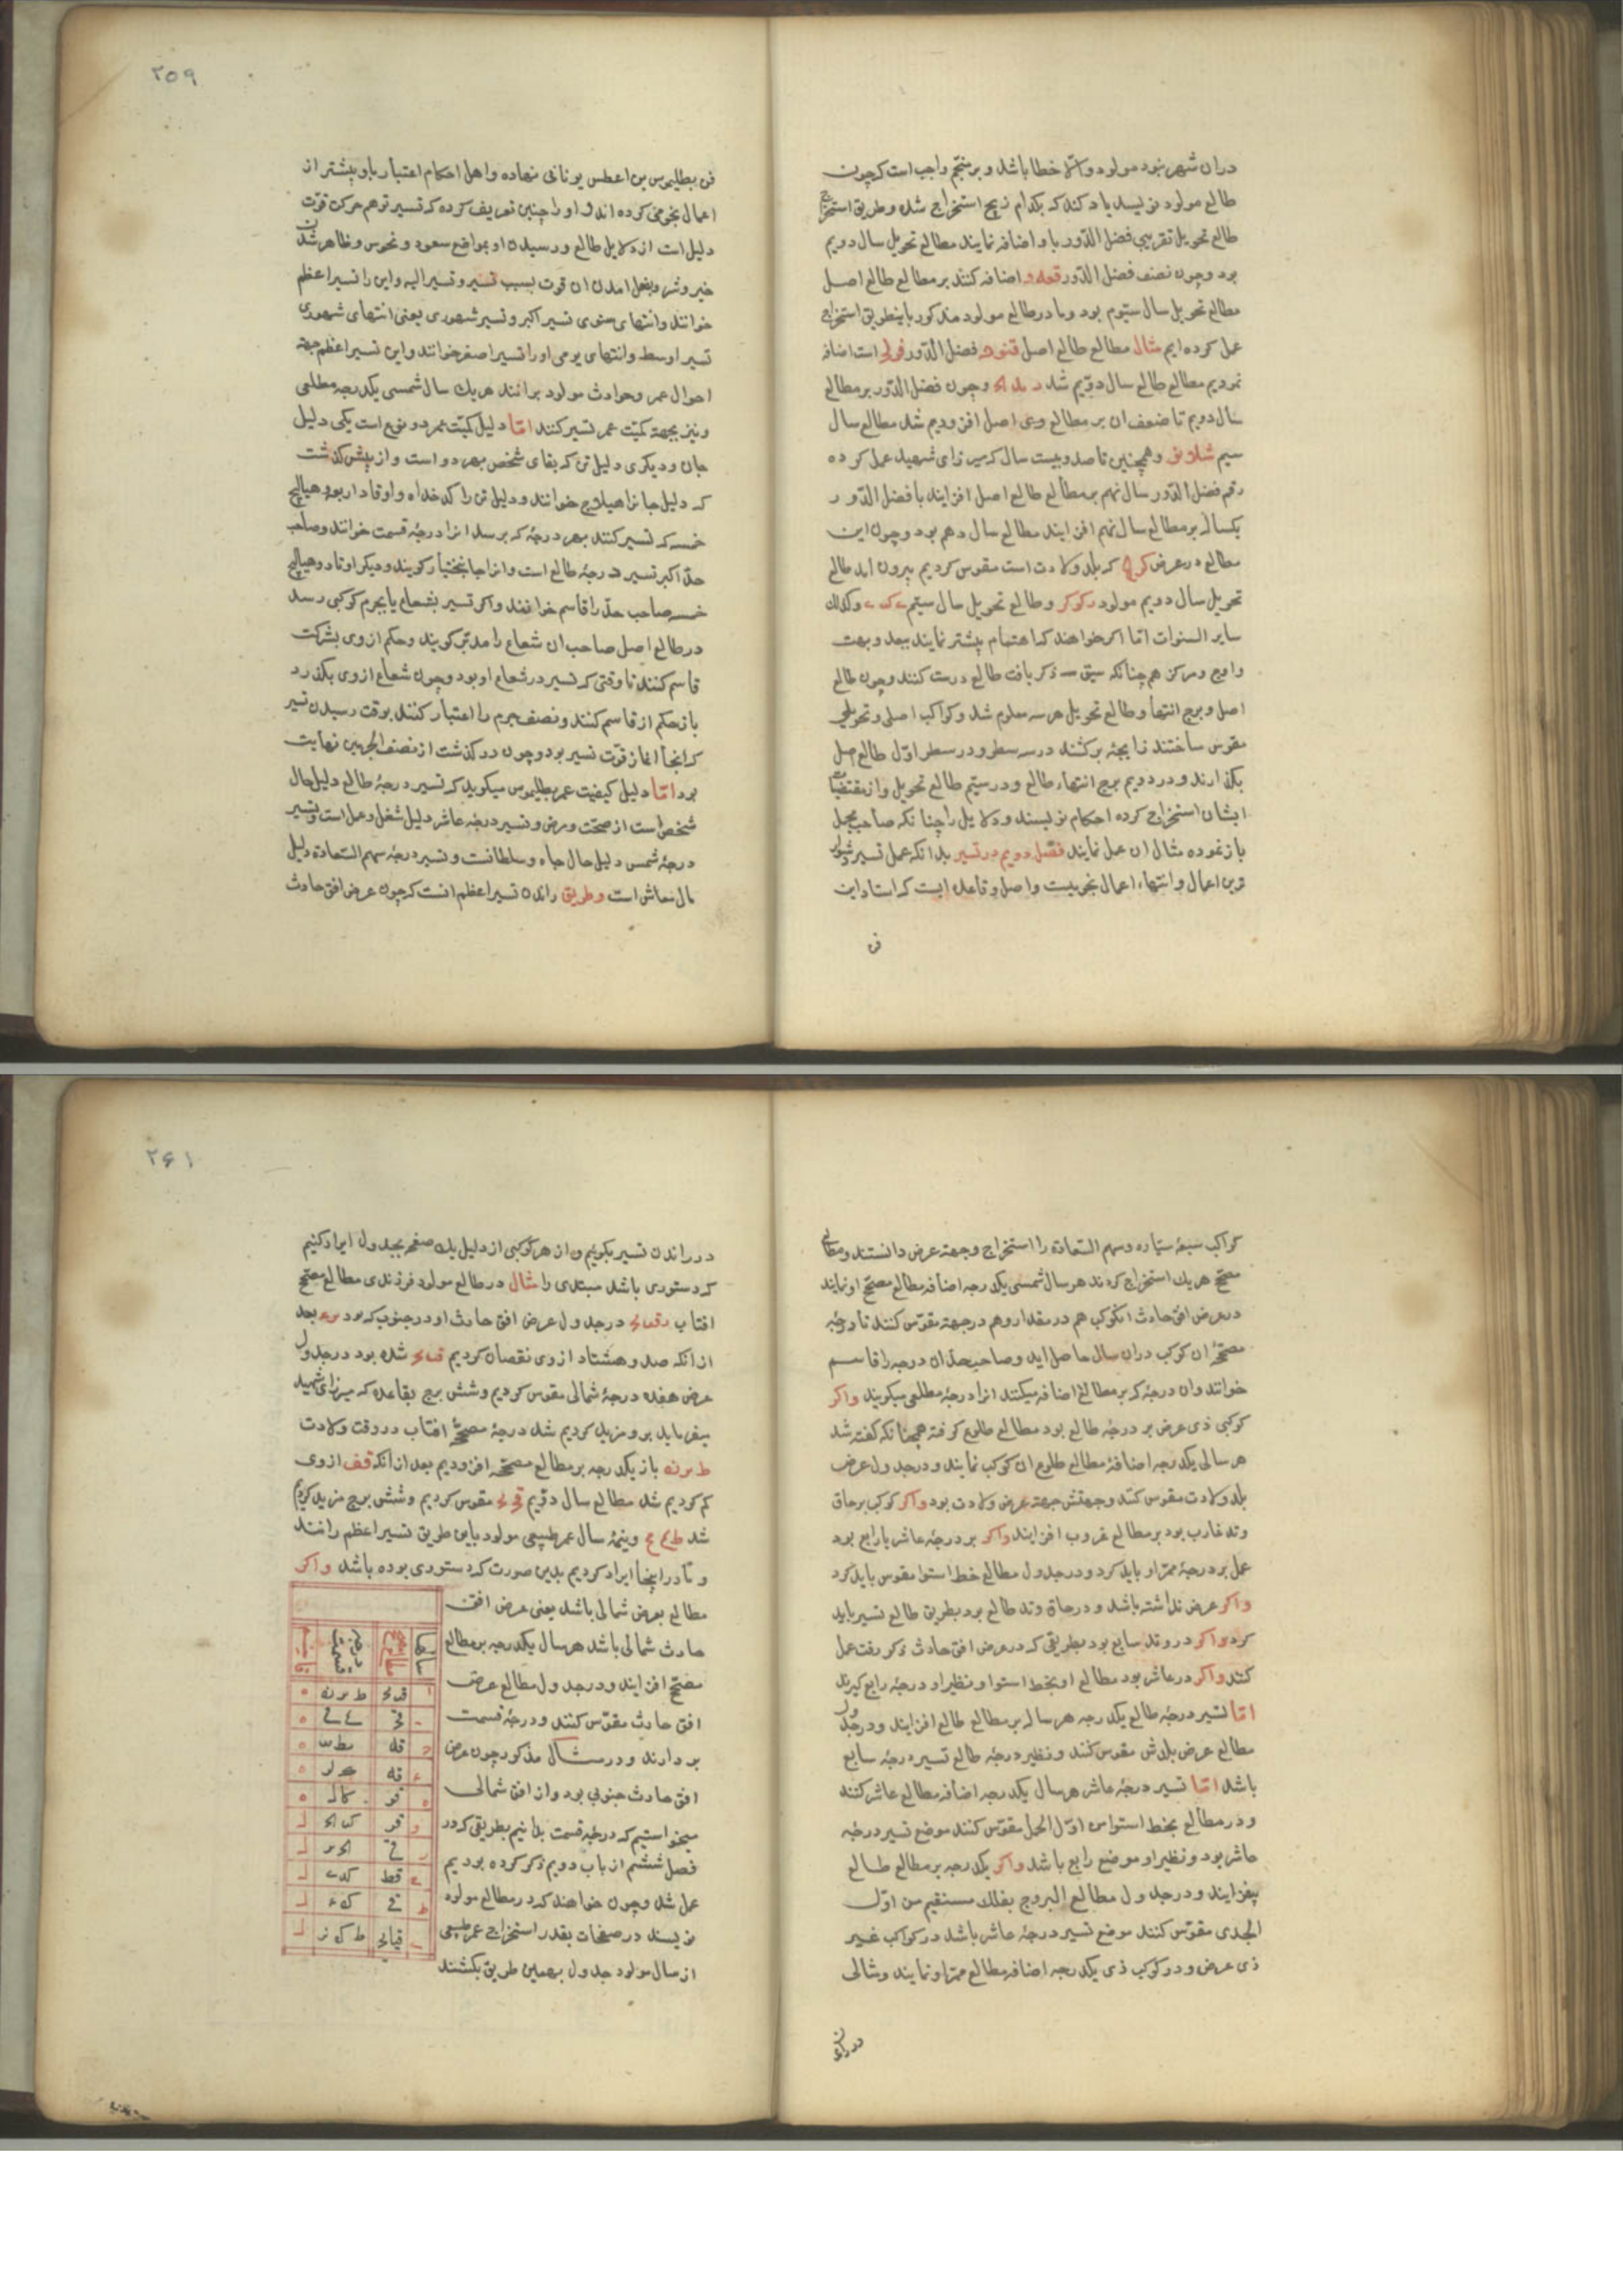 دران شهر نبود مولود والّا خطا باشد و بر منجّم واجب است که چون
طالع مولود نویسد یاد کند که بکدام زیج استخراج شد و طریق استخراج
طالع تحویل تقریبی فضل الدّور با و اضافه نمایند مطالع تحویل سال دویم
بود و چون نصف فضل الدّور اضافه کنند بر مطالع طالع اصل
مطالع تحویل سال سیّوم بود و ما در طالع مولود مذکور باینطریق استخراج
عمل کرده ایم مثال مطالع طالع اصل فضل الدّور است اضافه
نمودیم مطالع طالع سال دویّم شد و چون فضل الدّور بر مطالع
سال دویم تا ضعف ان بر مطالع اصل افزودیم شد مطالع سال
سیم و همچنین تا صد و بیست سال که میرزای شهید عمل کرده
رقم فضل الدّور سال نهم بر مطالع طالع اصل افزایند با فضل الدّور
یکساله بر مطالع سال نهم افزایند مطالع سال دهم بود و چون این
مطالع در عرض که بلد ولادت است مقوس کردیم بیرون امد طالع
تحویل سال دویم مولود و طالع تحویل سال سیّم و کذلك
سایر السنوات امّا اکر خواهند که اهتمام بیشتر نمایند ببعد و بهت
و اوج و مرکز هم چنانکه سبق ذکر یافت طالع درست کنند و چون طالع
اصل و برج انتها و طالع تحویل هر سه معلوم شد و کواکب اصلی و تحویلی
مقوس ساختند زایجه برکشند در سه سطر و در سطر اوّل طالع اصل
بکذارند و در دویم برج انتهاء طالع و در سیّم طالع تحویل و از مقتضیات
ایشان استخراج کرده احکام نویسند و دلایل را چنانکه صاحب مجمل
باز نموده مثال ان عمل نمایند فصل دویم در تسییر بدانکه عمل تسییر
ترین اعمال و انتهاء اعمال نجومیست و اصل و قاعده ایست که استاد این
فن
۲۵۹
فن بطلیموس بن اعطس یونانی نهاده و اهل احکام اعتبار باو بیشتر از
اعمال نجومی کرده اند و او را چنین تعریف کرده که تسییر توهم حرکت قوّت
دلیل است از دلایل طالع و رسیدن او بمواضع سعود و نحوس و ظاهر شدن
خیر و شر و بفعل امدن ان قوت بسبب تسییر و تسییر الیه و این را تسییر اعظم
خوانند و انتهای سنوی تسییر اکبر و تسییر شهوری یعنی انتهای شهوری
تسییر اوسط و انتهای یومی او را تسییر اصغر خوانند و این تسییر اعظم جهة
احوال عمر و حوادث مولود برانند هر یك سال شمسی یکدرجه مطلعی
و نیز بجهة کمیّت عمر تسییر کنند امّا دلیل کمیّت عمر دو نوع است یکی دلیل
جان و دیکری دلیل تن که بقای شخص بهر دو است و از پیش کذشت
که دلیل جانرا هیلاج خوانند و دلیل تن را کدخداه و اوتاد اربعه و هیالیج
خمسه که تسییر کنند بهر درجهٔ که برسد انرا درجهٔ قسمت خوانند و صاحب
حدّ اکبر تسییر درجهٔ طالع است و انرا جانبختیار کویند و دیکر اوتاد و هیالیج
خمسه صاحب حدّ را قاسم خوانند و اکر تسییر بشعاع یا بجرم کوکبی رسد
در طالع اصل صاحب ان شعاع را مدبّر کویند و حکم از وی بشرکت
قاسم کنند تا وقتی که تسییر در شعاع او بود و چون شعاع از وی بکذرد
باز حکم از قاسم کنند و نصف جرم را اعتبار کنند بوقت رسیدن تسییر
که انجا اغاز قوّت تسییر بود و چون در کذشت از نصف الجرمین نهایت
بود امّا دلیل کیفیت عمر بطلیموس میکوید که تسییر درجهٔ طالع دلیل حال
شخص است از صحّت و مرض و تسییر درجه عاشر دلیل شغل و عمل است و تسییر
درجهٔ شمس دلیل حال جاه و سلطانت و تسییر درجهٔ سهم السّعادة دلیل
مال معاش است و طریق راندن تسییر اعظم انست که چون عرض افق حادث
کواکب سبعهٔ سیّاره و سهم السّعادة را استخراج و جهة عرض دانستند و مطالع
مصحّح هر یك استخراج کردند هر سال شمسی یکدرجه اضافه مطالع مصحّح او نمایند
در عرض افق حادث انکوکب هم در مقدار و هم در جهة مقوّس کنند تا درجه
مصحّحهٔ ان کوکب دران سال حاصل اید و صاحب حدّ ان درجه را قاسم
خوانند و ان درجه که بر مطالع اضافه میکنند انرا درجهٔ مطلعی میکویند و اکر
کوکبی ذی عرض بر درجهٔ طالع بود مطالع طلوع کرفته همچنانکه کفته شد
هر سالی یکدرجه اضافهٔ مطالع طلوع ان کوکب نمایند و در جدول عرض
بلد ولادت مقوس کنند و جهتش جهة عرض ولادت بود و اکر کوکب بر حاق
وتد غارب بود بر مطالع غروب افزایند و اکر بر درجهٔ عاشر یا رابع بود
عمل بر درجهٔ ممرّ او باید کرد و در جدول مطالع خط استوا مقوس باید کرد
و اکر عرض نداشته باشد و در حاق وتد طالع بود بطریق طالع تسییر باید
کرد و اکر در وتد سابع بود بطریقی که در عرض افق حادث ذکر رفت عمل
کنند و اکر در عاشر بود مطالع او بخط استوا و نظیر او درجهٔ رابع کیرند
امّا تسییر درجهٔ طالع یکدرجه هر ساله بر مطالع طالع افزایند و در جدول
مطالع عرض بلدش مقوس کنند و نظیر درجه طالع تسییر درجه سابع
باشد امّا تسییر درجهٔ عاشر هر سال یکدرجه اضافه مطالع عاشر کنند
و در مطالع بخط استوا من اوّل الحمل مقوّس کنند موضع تسییر درجه
عاشر بود و نظیر او موضع رابع باشد و اکر یکدرجه بر مطالع طالع
بیفزایند و در جدول مطالع البروج بفلك مستقیم من اوّل
الجدی مقوّس کنند موضع تسییر درجهٔ عاشر باشد در کواکب غیر
ذی عرض و در کوکب ذی یکدرجه اضافه مطالع ممرّ او نمایند و مثالی
در راندن
۲۶۱
در راندن تسییر بکوئیم و از هر کوکبی از دلیل یك صفحه بجدول ایراد کنیم
که دستوری باشد مبتدی را مثال در طالع مولود فرزندی مطالع مصحّح
افتاب در جدول عرض افق حادث او در جنوب که بود بعد
از انکه صد و هشتاد از وی نقصان کردیم شده بود در جدول
عرض هفده درجهٔ شمالی مقوس کردیم و شش برج بقاعده که میرزای شهید
میفرماید برو مزید کردیم شد درجهٔ مصحّحهٔ افتاب در وقت ولادت
باز یکدرجه بر مطالع مصحّحه افزودیم بعد از انکه قف از وی
کم کردیم شد مطالع سال دویّم مقوس کردیم و شش برج مزید کردیم
شد و تتمهٔ سال عمر طبیعی مولود باین طریق تسییر اعظم راندند
و ما در اینجا ایراد کردیم بدین صورت که دستوری بوده باشد و اکر
مطالع بعرض شمالی باشد یعنی عرض افق
حادث شمالی باشد هر سال یکدرجه بر مطالع
مصحّح افزایند و در جدول مطالع عرض
افق حادث مقوّس کنند و درجهٔ قسمت
بردارند و در مثال مذکور چون عرض
افق حادث جنوبی بود و از افق شمالی
میخواستیم که درجه قسمت بدانیم بطریقی که در
فصل ششم از باب دویم ذکر کرده بودیم
عمل شد و چون خواهند که در مطالع مولود
نویسند در صفحات بقدر استخراج عمر طبیعی
از سال مولود جدول بهمین طریق بکشند